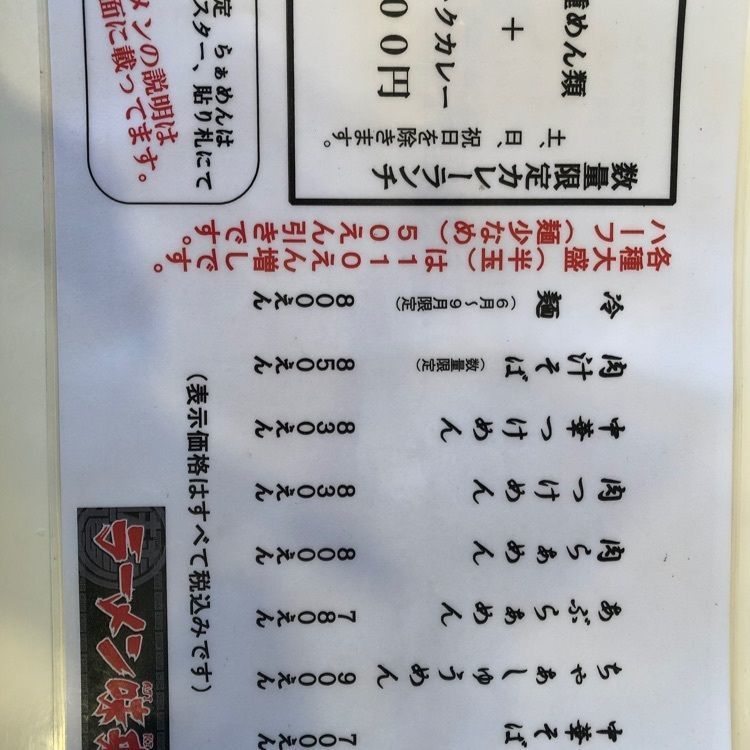 中華そば 700えん
ちゃあしゅうめん 900えん
あぶらぁめん 780えん
肉らぁめん 800えん
肉つけめん 830えん
中華つけめん 830えん
肉汁そば (数量限定) 850えん
冷麺 (6月～9月限定) 800えん
各種大盛(半玉)は110えん増しです。
ハーフ(麺少なめ)50えん引きです。
(表示価格はすべて税込みです)
数量限定カレーランチ
土、日、祝日を除きます。
種めん類
+
クカレー
00円
定 らぁめんは
スター、貼り札にて
メンの説明は
面に載ってます。
ラーメン味